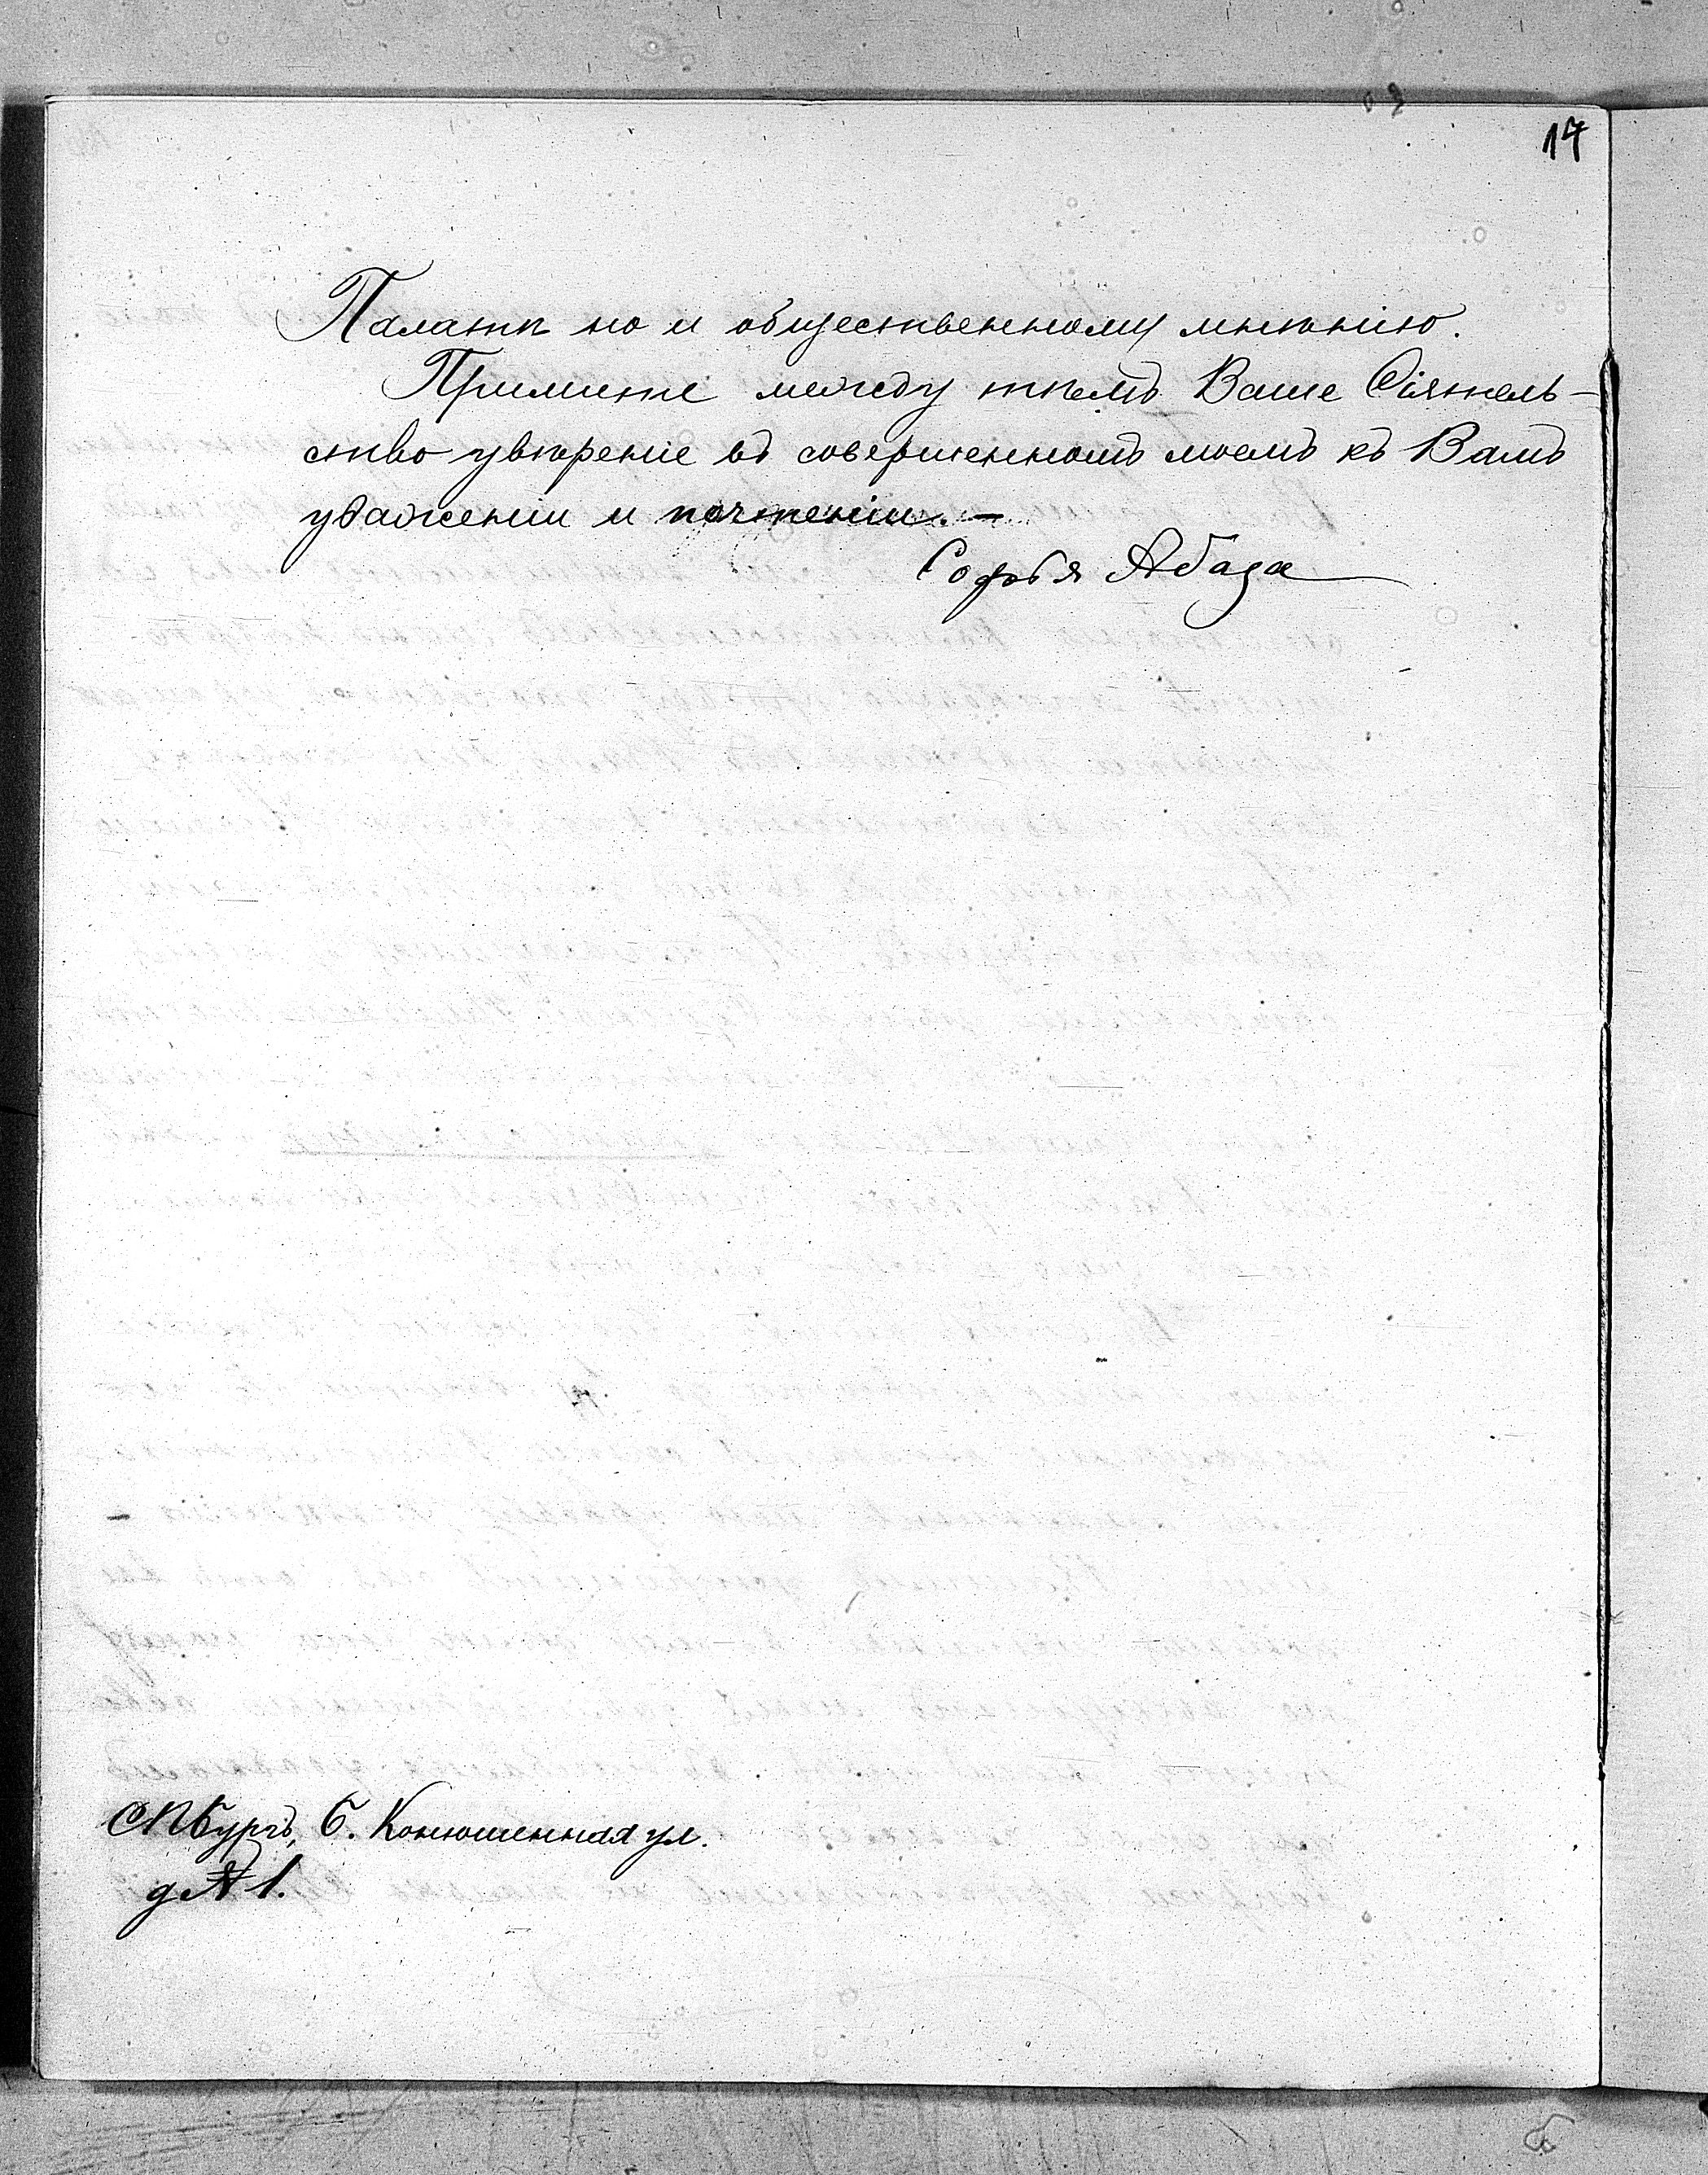 17
Палатѣ но и общественному мнѣнію.
Примите между тѣмъ Ваше Сіятель-
ство увѣреніе въ совершенномъ моемъ къ Вамъ
уваженіи и почтеніи. —
Софья Абаза
СПбургъ, Б. Конюшенная ул.
д № 1.